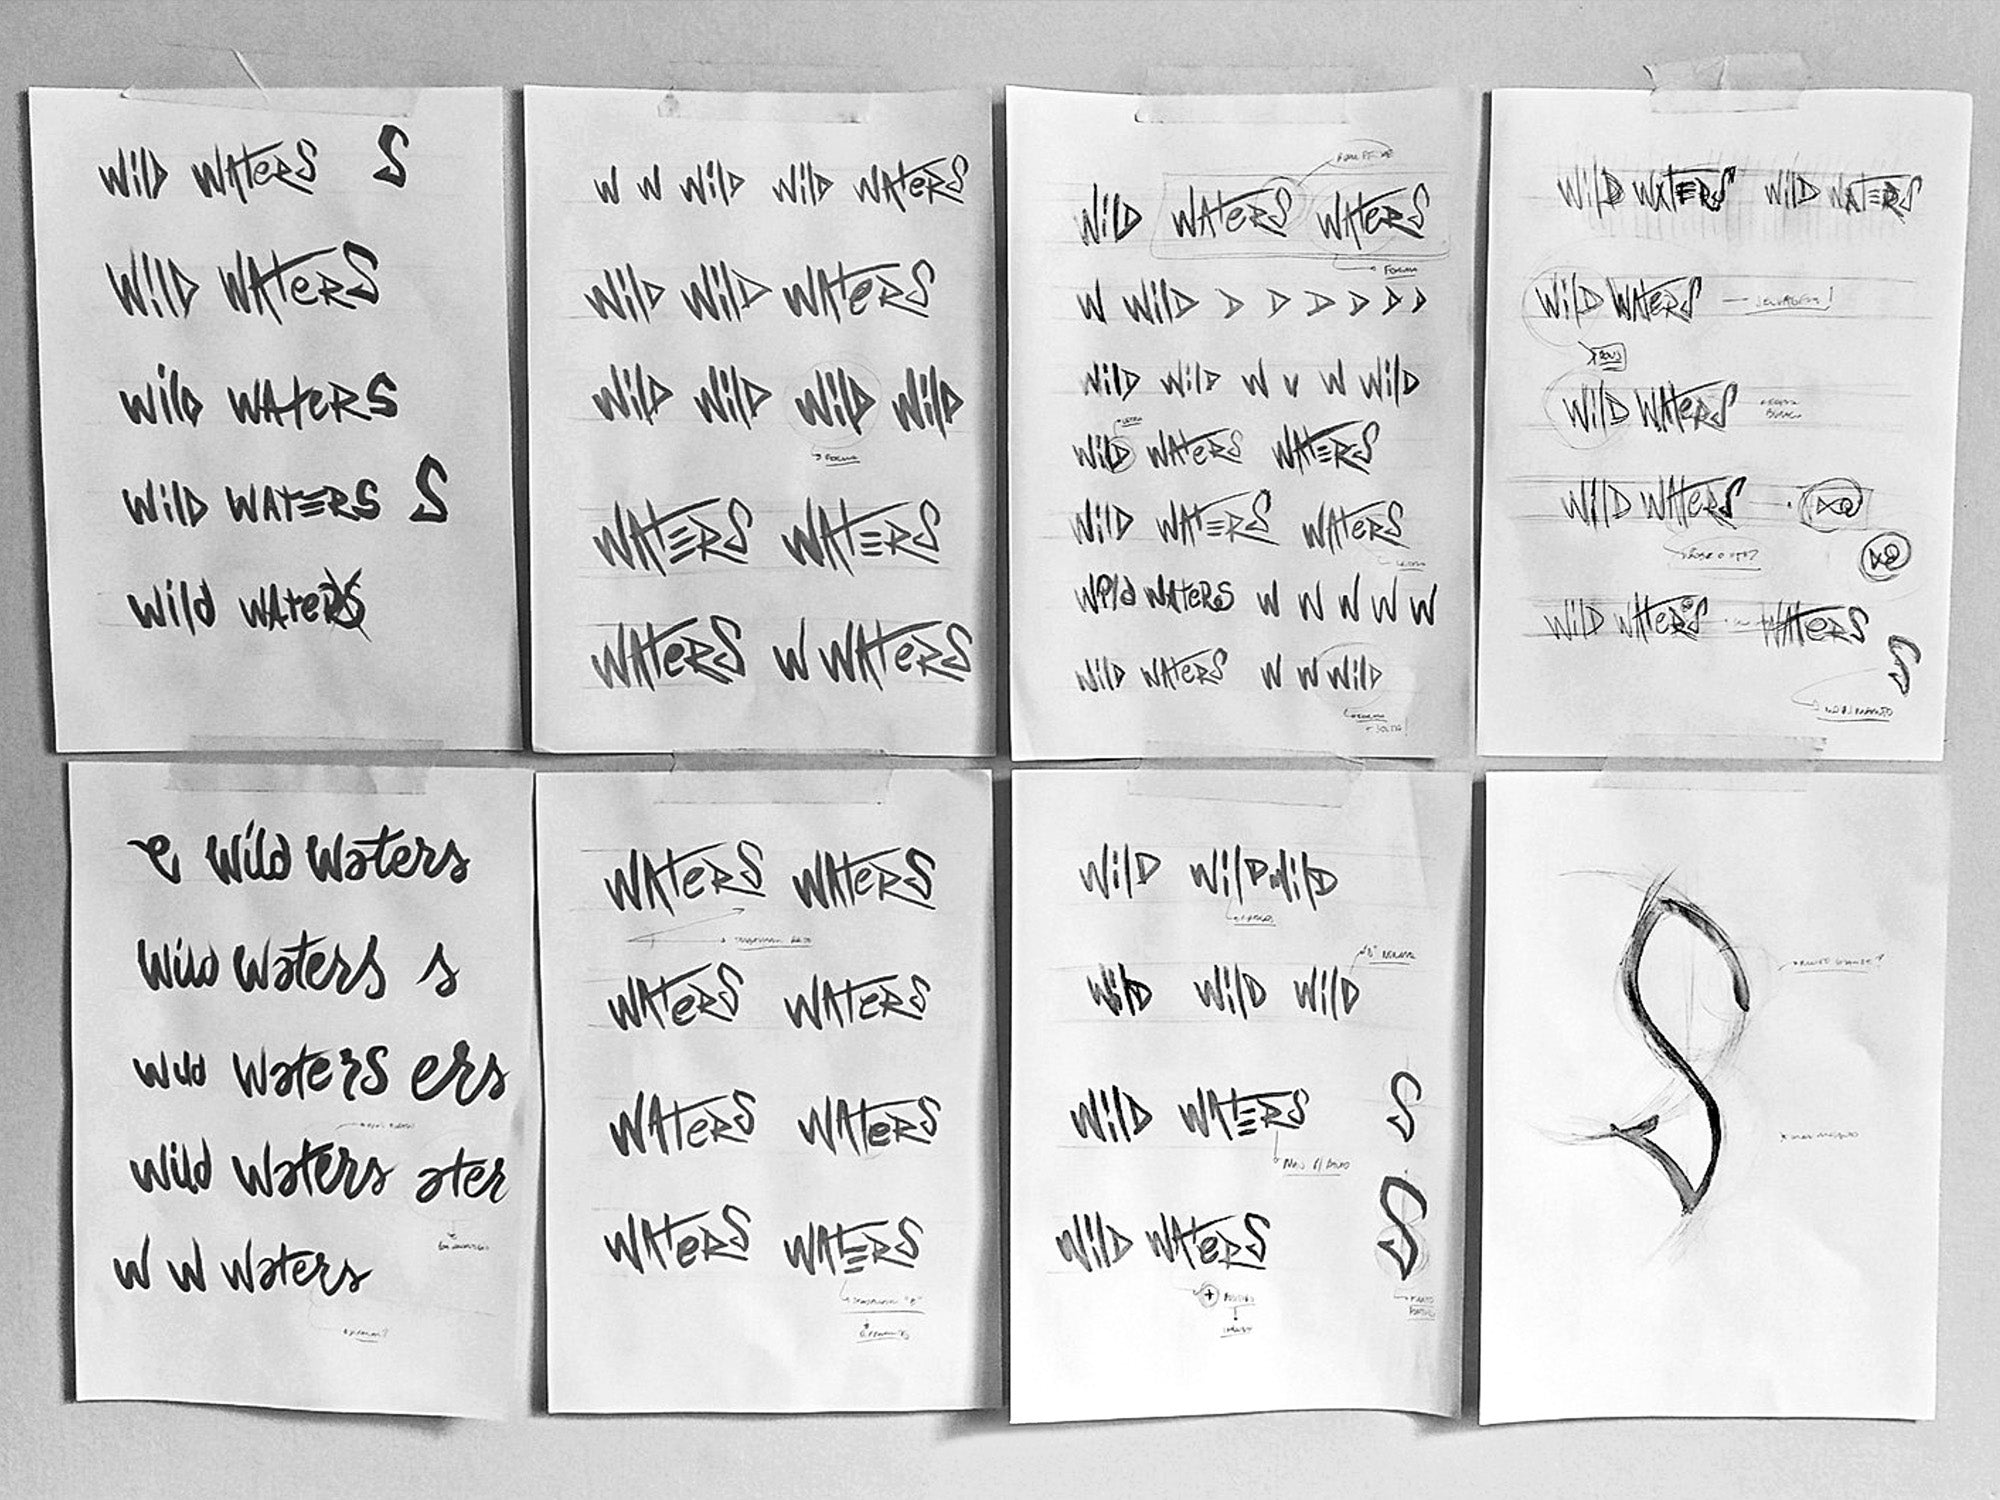 Wild Waters S
Wild Waters
Wild Waters
Wild Waters S
Wild Waters
W W Wild Wild Waters
Wild Wild Waters
Wild Wild Wild Wild
Forma
Waters Waters
Waters W Waters
Wild Waters Waters
Forma
W Wild D D D D D D D
Wild Wild W V W Wild
Wild Waters Waters
Wild Waters Waters
Wild Waters W W W W W
Wild Waters W W Wild
+ solta!
Wild Waters Wild Waters
Wild Waters — selvagem!
Wild Waters
Wild Waters
Wild Waters Waters
S
movimento
e Wild Waters
Wild Waters s
Wild Waters ers
Wild Waters ater
W W Waters
Waters Waters
Waters Waters
Waters Waters
Waters Waters
Wild Wild Wild
Wild Wild Wild
Wild Waters S
Wild Waters S
+
S